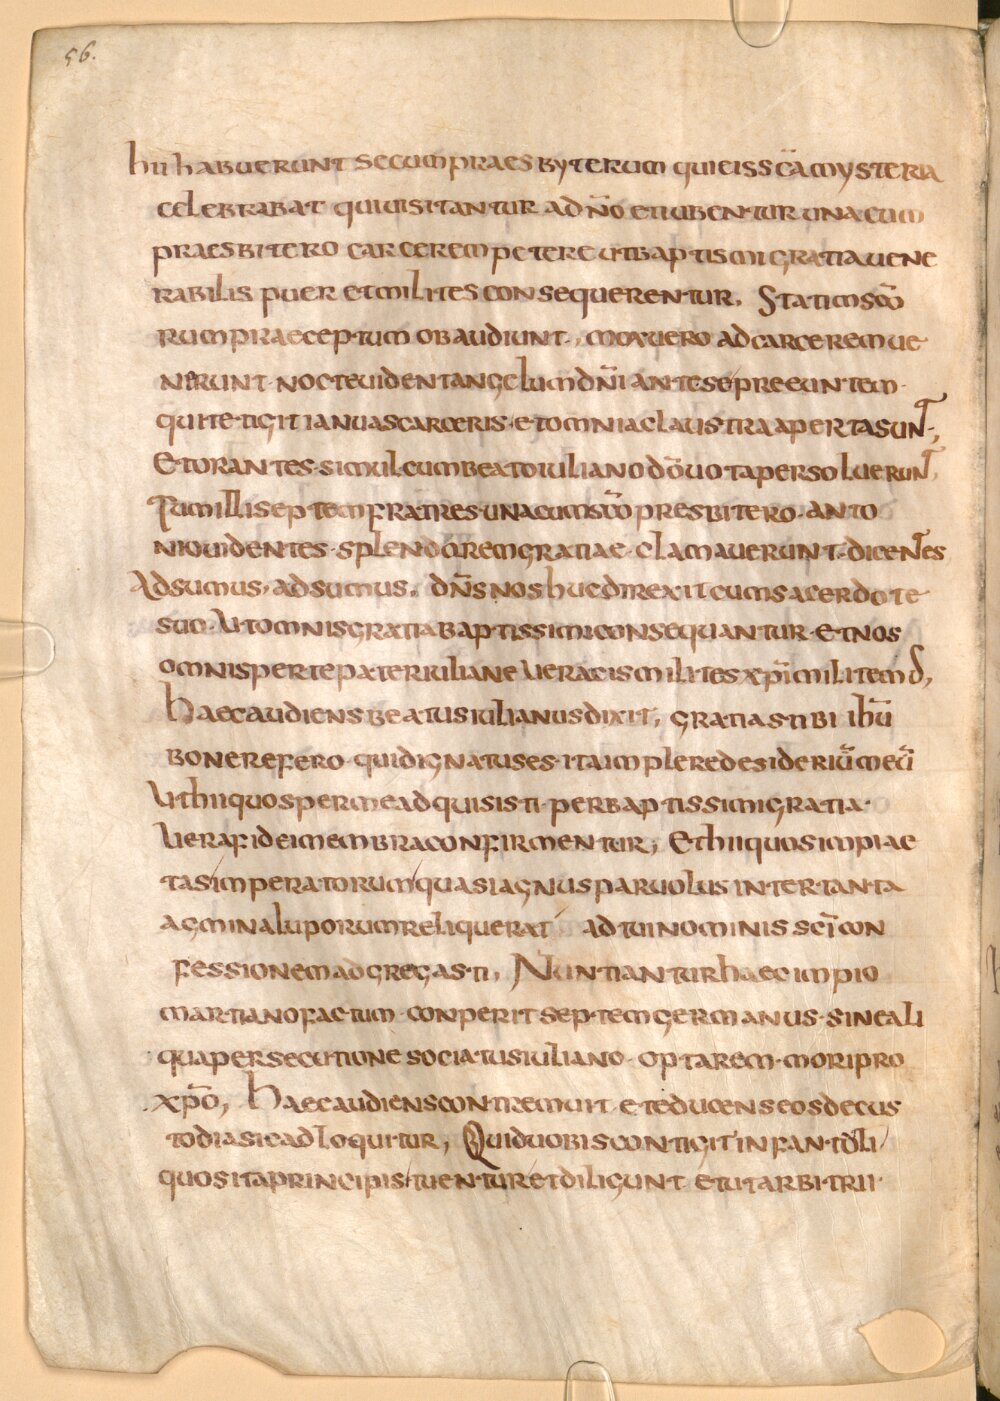 56.
hii habuerunt secum praesbyterum qui eis sc̄a mysteria
celebrabat qui uisitantur ad n̄o et iubentur una cum
praesbitero carcerem petere ut baptismi gratia uene
rabilis puer et milites consequerentur. Statim sc̄o
rum praeceptum obaudiunt., mox uero ad carcerem ue
nerunt· nocte uident angelum dn̄i ante se preeuntem·
qui tetigit ianuas carceris· et omnia claustra aperta sunt.,
Et orantes· simul cum beato iuliano dō uota persoluerunt,
Tum illi septem fratres· una cum sc̄o presbitero· anto
nio uidentes· splendorem gratiae· clamauerunt· dicentes
Adsumus, adsumus. dn̄s nos huc direxit cum sacerdote
suo· Ut omnis gratia baptissimi consequantur· et nos
omnis per te pater iuliane ueracis milites xp̄i militemꝰ,
Haec audiens beatus iulianus dixit, gratias tibi ih̄u
bone refero· qui dignatus es· ita implere desideriū meū
Ut hii quos per me adquisisti· per baptissimi gratia·
Uera fidei membra confirmentur, Et hii quos impiae
tas imperatorum quasi agnus paruolus inter tanta
agmina luporum reliquerat ad tui nominis sc̄i con
fessionem adgregasti, Nuntiantur haec impio
martiano factum· conperit septem germanus· sineali
qua persecutione sociatus iuliano· optarem· mori pro
xp̄o, Haec audiens contremuit· et educens eos de cus
todia sic adloquitur, Quid uobis contigit infantoli
quos ita principis tuentur et diligunt et ut arbitrii·